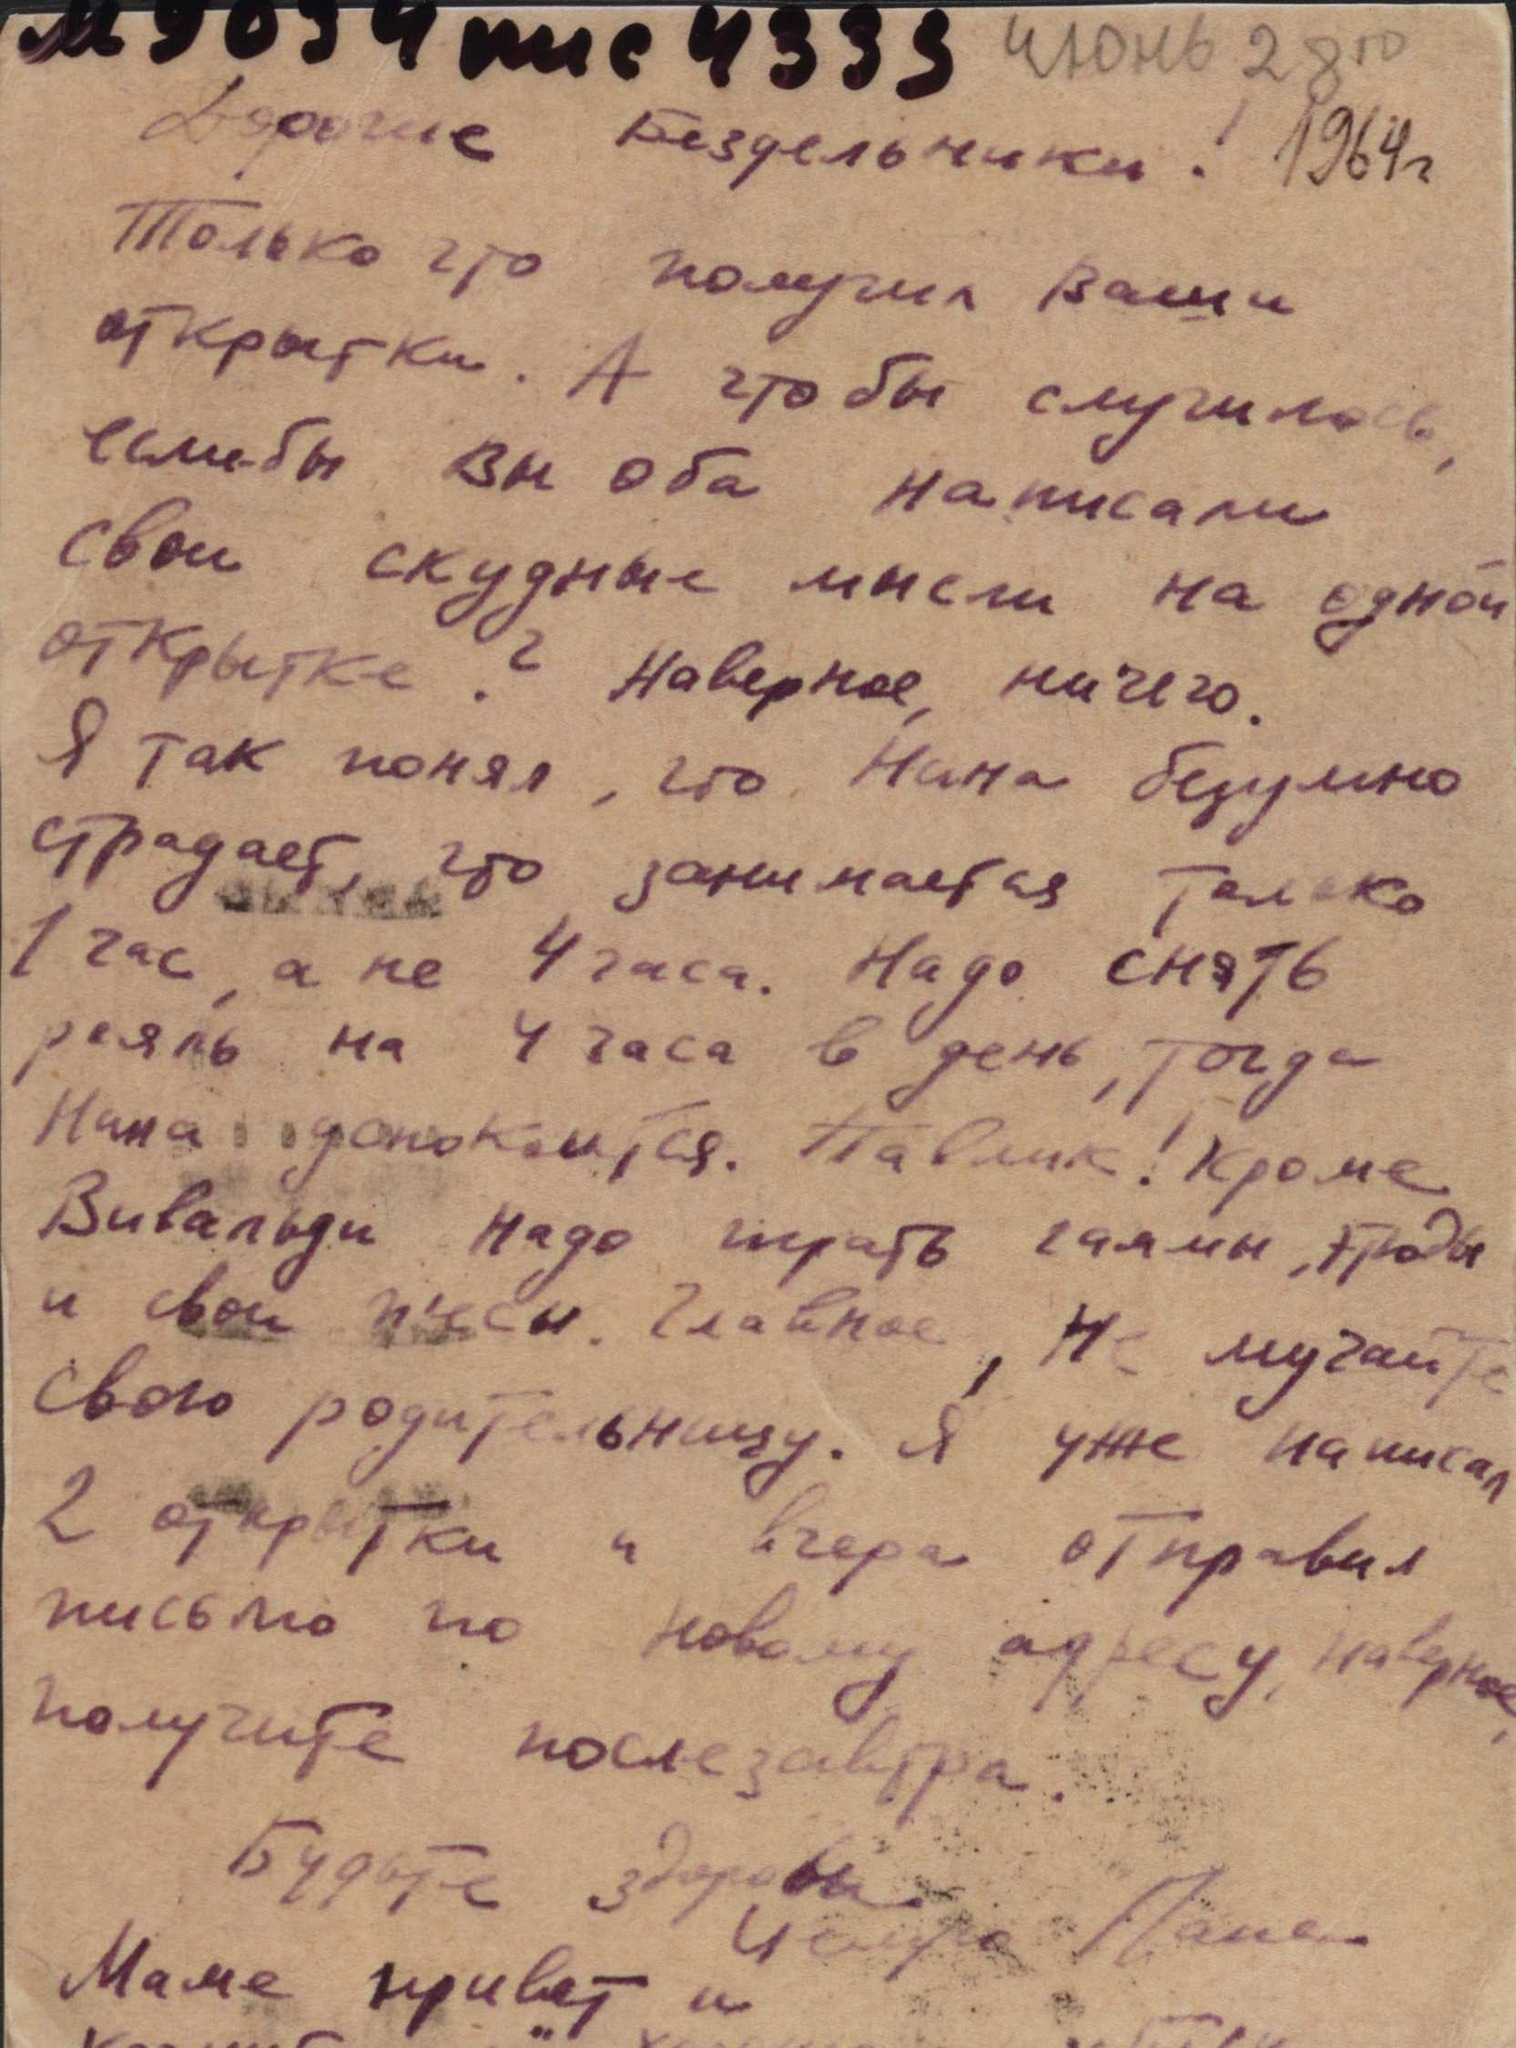 М9034 пис 4333 июнь 28го
Дорогие Бездельники! 1964г
Только что получил Ваши
открытки. А что бы случилось,
если-бы Вы оба написали
свои скудные мысли на одной
открытке? Наверное, ничего.
Я так понял, что Нана безумно
страдает, что занимается только
1 час, а не 4 часа. Надо снять
рояль на 4 часа в день, тогда
Нана успокоится. Павлик! Кроме
Вивальди надо играть гаммы, этюды
и свои п'есы. Главное, не мучайте
свою родительницу. Я уже написал
2 открытки и вчера отправил
письмо по новому адресу, наверное,
получите послезавтра.
Будьте здоровы.
Папа
Маме привет и